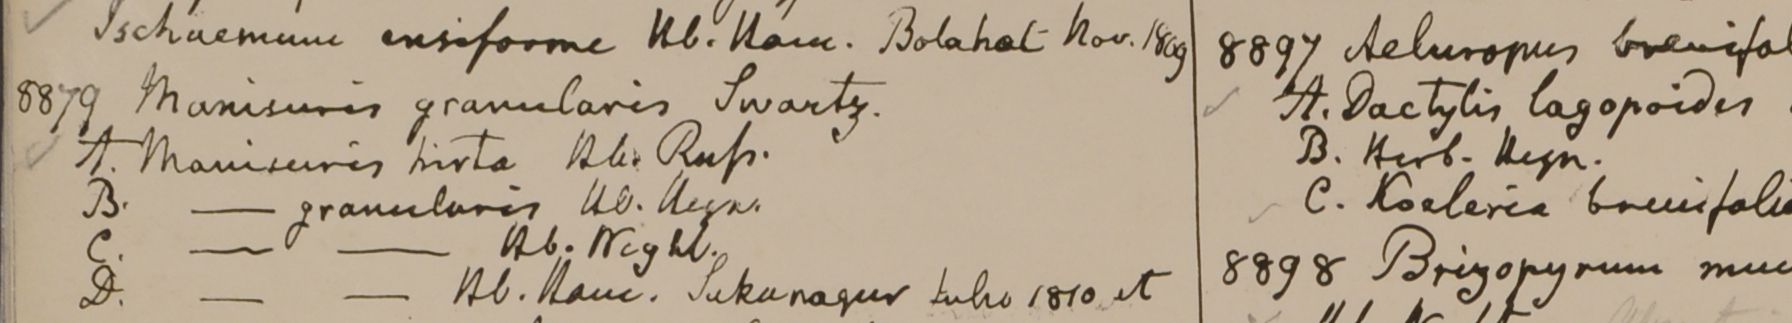 Ischaemum ensiforme Hb. Ham. Bolahat Nov. 1809
8879 Manisuris granularis Swartz.
A. Manisuris hirta Hb. Russ.
B. — granularis Hb. Heyn.
C. — — Hb. Wight.
D. — — Hb. Ham. Sukanagur Julio 1810 et
8897 Aeluropus brevifol
A. Dactylis lagopoides
B. Herb. Heyn.
C. Koeleria brevifolia
8898 Brizopyrum muc